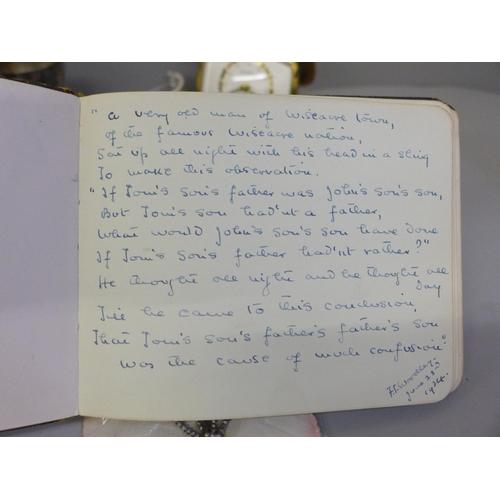 "A very old man of Wiseacre town,
of the famous Wiseacre nation,
Sat up all night with his head in a sling
To make this observation.
"If Tom's son's father was John's son's son,
But Tom's son had'nt a father,
What would John's son's son have done
If Tom's son's father had'nt rather?"
He thought all night and he thought all
day
Till he came to this conclusion,
That Tom's son's father's father's son
was the cause of much confusion."
June 23rd